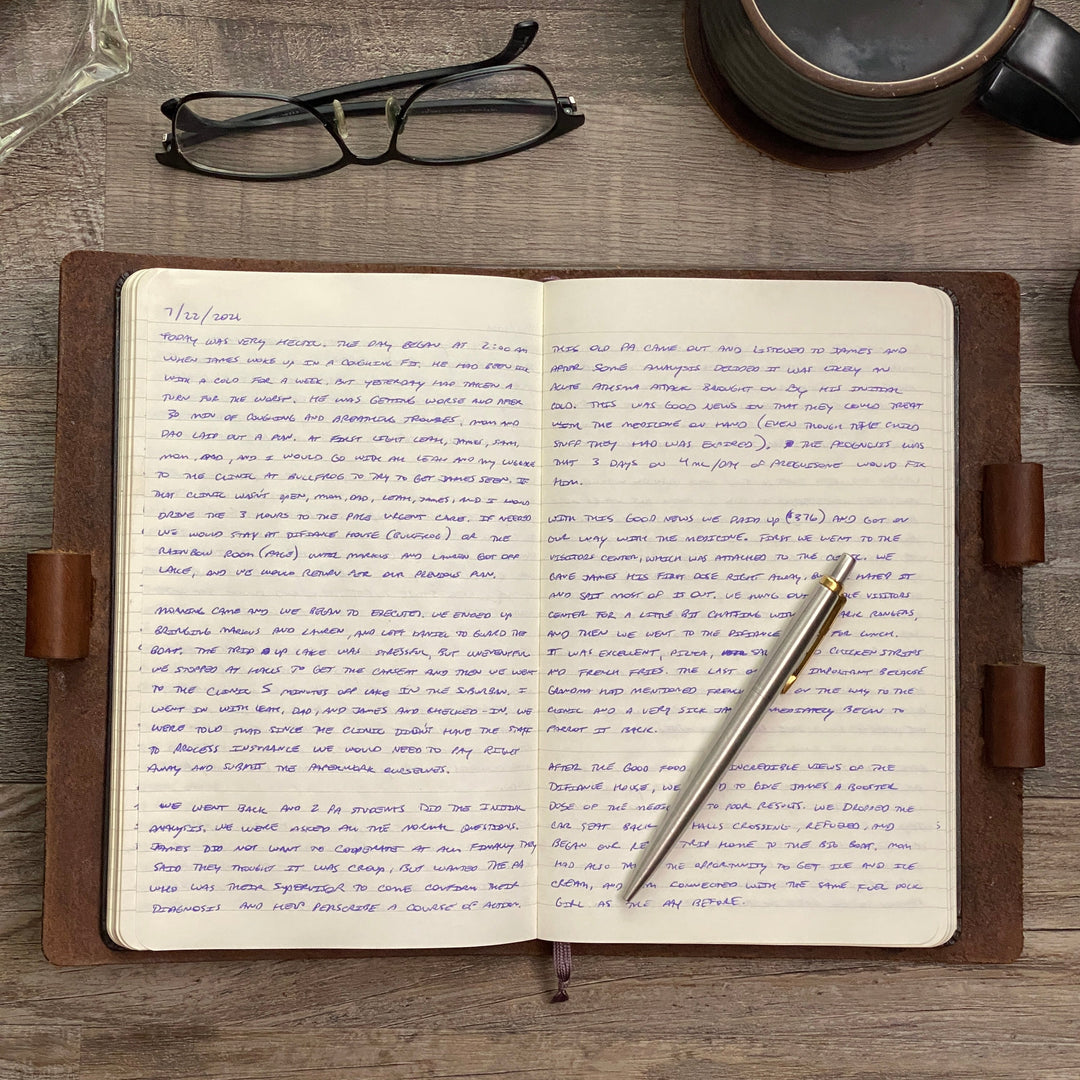 7/22/2021
TODAY WAS VERY HECTIC. THE DAY BEGAN AT 2:00 AM
WHEN JAMES WOKE UP IN A COUGHING FIT. HE HAD BEEN SICK
WITH A COLD FOR A WEEK, BUT YESTERDAY HAD TAKEN A
TURN FOR THE WORST. HE WAS GETTING WORSE AND AFTER
30 MIN OF COUGHING AND BREATHING TROUBLES, MOM AND
DAD LAID OUT A PLAN. AT FIRST LIGHT LEAH, JAMES, SAM,
MOM, DAD, AND I WOULD GO WITH ALL LEAH AND MY LUGGAGE
TO THE CLINIC AT BULLFROG TO TRY TO GET JAMES SEEN. IF
THAT CLINIC WASN'T OPEN, MOM, DAD, LEAH, JAMES, AND I WOULD
DRIVE THE 3 HOURS TO THE PAGE URGENT CARE. IF NEEDED
WE WOULD STAY AT DIFIANCE HOUSE (BULLFROG) OR THE
RAINBOW ROOM (PAGE) UNTIL MARKUS AND LAUREN GOT OFF
LAKE, AND WE WOULD RETURN PER OUR PREVIOUS PLAN.
MORNING CAME AND WE BEGAN TO EXECUTE. WE ENDED UP
BRINGING MARKUS AND LAUREN, AND LEFT DANIEL TO GUARD THE
BOAT. THE TRIP UP LAKE WAS STRESSFUL, BUT UNEVENTFUL
WE STOPPED AT HALLS TO GET THE CARSEAT AND THEN WE WENT
TO THE CLINIC 5 MINUTES OFF LAKE IN THE SUBURBAN. I
WENT IN WITH LEAH, DAD, AND JAMES AND CHECKED-IN. WE
WERE TOLD THAT SINCE THE CLINIC DIDN'T HAVE THE STAFF
TO PROCESS INSURANCE WE WOULD NEED TO PAY RIGHT
AWAY AND SUBMIT THE PAPERWORK OURSELVES.
WE WENT BACK AND 2 PA STUDENTS DID THE INITIAL
ANALYSIS. WE WERE ASKED ALL THE NORMAL QUESTIONS.
JAMES DID NOT WANT TO COOPERATE AT ALL. FINALLY THEY
SAID THEY THOUGHT IT WAS CROUP, BUT WANTED THE PA
WHO WAS THEIR SUPERVISOR TO COME CONFIRM THEIR
DIAGNOSIS AND HELP PERSCRIBE A COURSE OF ACTION.
THIS OLD PA CAME OUT AND LISTENED TO JAMES AND
AFTER SOME ANALYSIS DECIDED IT WAS LIKELY AN
ACUTE ATHSMA ATTACK BROUGHT ON BY HIS INITIAL
COLD. THIS WAS GOOD NEWS IN THAT THEY COULD TREAT
WITH THE MEDICINE ON HAND (EVEN THOUGH THE CHILD
STUFF THEY HAD WAS EXPIRED). THE PROGNOSIS WAS
THAT 3 DAYS ON 4 ML/DAY OF PREDNISONE WOULD FIX
HIM.
WITH THIS GOOD NEWS WE PAID UP ($376) AND GOT ON
OUR WAY WITH THE MEDICINE. FIRST WE WENT TO THE
VISITORS CENTER, WHICH WAS ATTACHED TO THE CLINIC. WE
GAVE JAMES HIS FIRST DOSE RIGHT AWAY, HATED IT
AND SPIT MOST OF IT OUT. WE HUNG OUT VISITORS
CENTER FOR A LITTLE BIT CHATTING WITH RANGERS,
AND THEN WE WENT TO THE DIFIANCE FOR LUNCH.
IT WAS EXCELLENT, PIZZA, CHICKEN STRIPS
AND FRENCH FRIES. THE LAST IMPORTANT BECAUSE
GRANDMA HAD MENTIONED FRENCH ON THE WAY TO THE
CLINIC AND A VERY SICK BEGAN TO
PARROT IT BACK.
AFTER THE GOOD FOOD INCREDIBLE VIEWS OF THE
DIFIANCE HOUSE, WE TO GIVE JAMES A BOOSTER
DOSE OF THE TO POOR RESULTS. WE DROPPED THE
CAR SEAT BACK HALLS CROSSING, REFUELED, AND
BEGAN OUR TRIP HOME TO THE BIG BOAT. MOM
HAD ALSO THE OPPORTUNITY TO GET ICE AND ICE
CREAM, AND CONNECTED WITH THE SAME FUEL DOCK
GIRL AS THE DAY BEFORE.